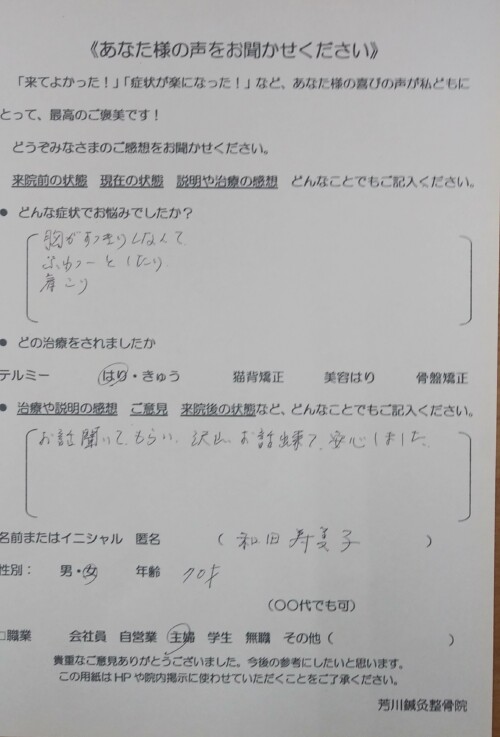 《あなた様の声をお聞かせください》
「来てよかった！」「症状が楽になった！」など、あなた様の喜びの声が私どもに
とって、最高のご褒美です！
どうぞみなさまのご感想をお聞かせください。
来院前の状態 現在の状態 説明や治療の感想 どんなことでもご記入ください。
● どんな症状でお悩みでしたか？
胸がすっきりしなくて
ふわっーとしたり
肩こり
● どの治療をされましたか
テルミー はり・きゅう 猫背矯正 美容はり 骨盤矯正
● 治療や説明の感想 ご意見 来院後の状態など、どんなことでもご記入ください。
お話聞いてもらい、沢山お話出来て、安心しました
名前またはイニシャル 匿名 （ 和田寿美子 ）
性別： 男・女 年齢 70才
（〇〇代でも可）
□職業 会社員 自営業 主婦 学生 無職 その他（ ）
貴重なご意見ありがとうございました。今後の参考にしたいと思います。
この用紙はHPや院内掲示に使わせていただくことをご了承ください。
芳川鍼灸整骨院